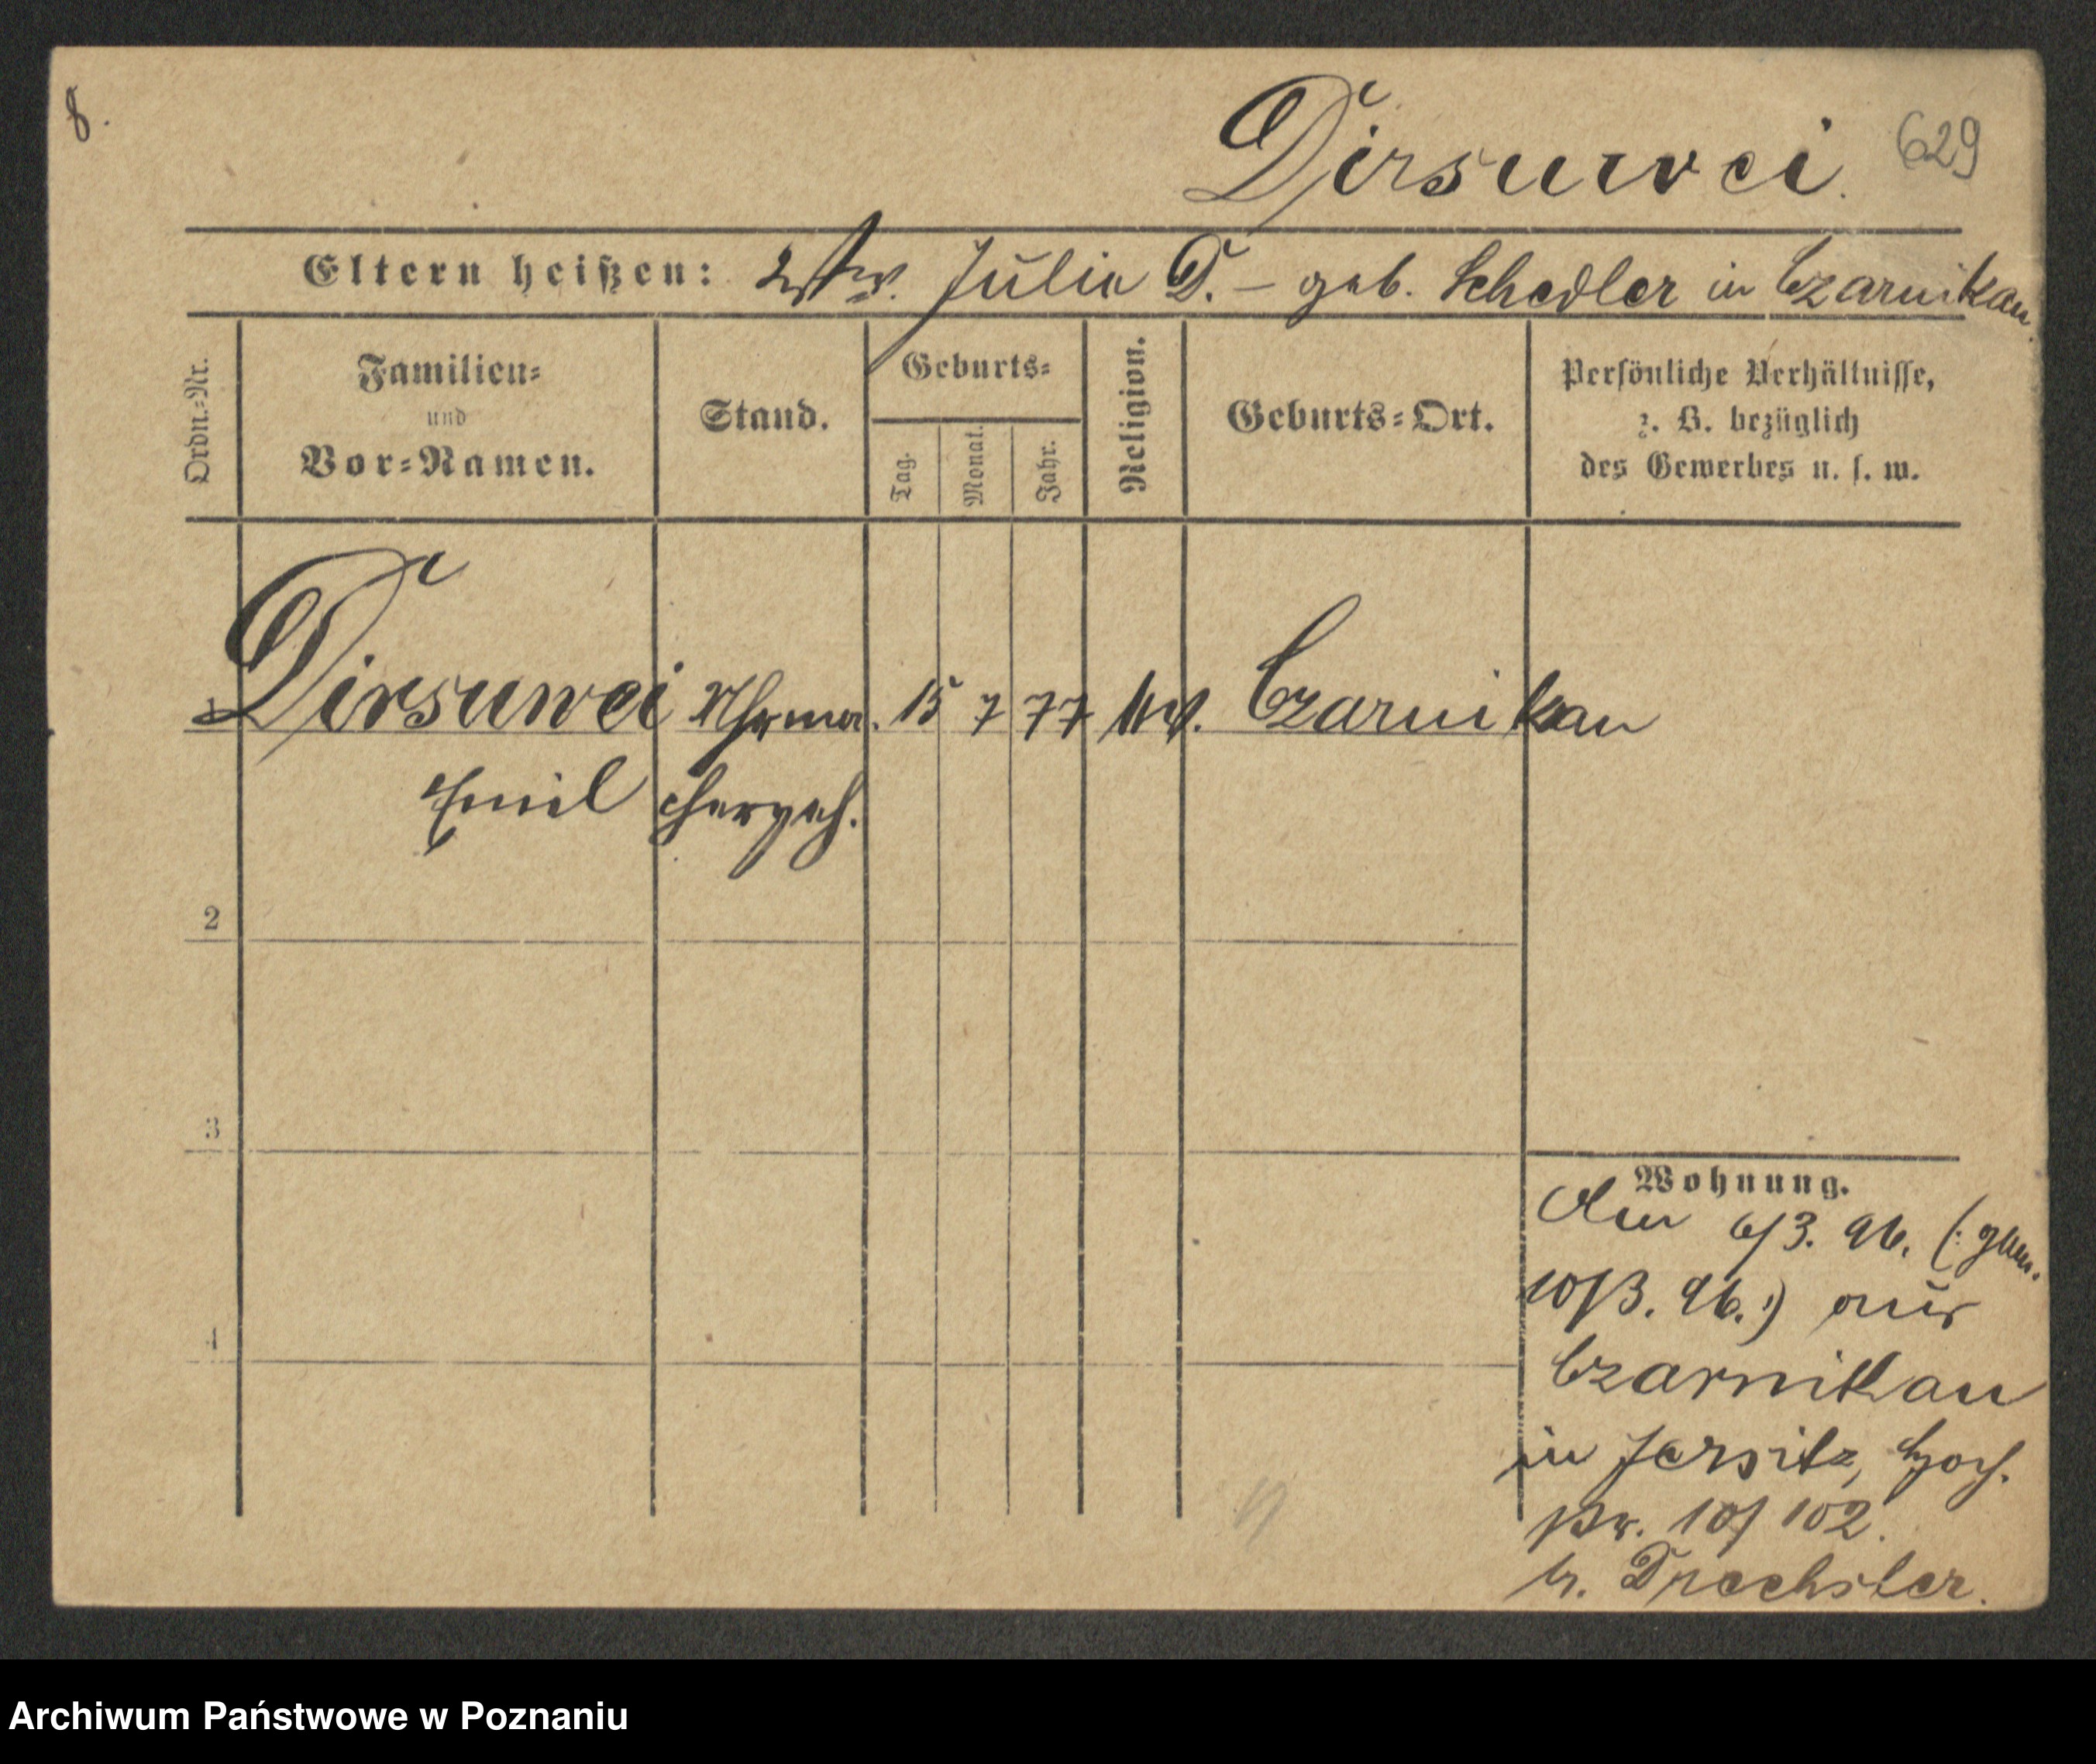 8.
Dirsuwei. 629
Eltern heißen: Wtw. Julie D. – geb. Schedler in Czarnikau.
Ordn.=Nr.
Familien=
und
Vor=Namen.
Stand.
Geburts=
Tag.
Monat.
Jahr.
Religion.
Geburts=Ort.
Persönliche Verhältnisse,
z. B. bezüglich
des Gewerbes u. s. w.
1 Dirsuwei Uhrma. 15 7 77 ev. Czarnikau
Emil chergeh.
2
3
4
Wohnung.
Am 6/3. 96. (: gem.
10/3. 96. :) aus
Czarnikau
in Jersitz,
10/ 102.
b. Drechsler.
Archiwum Państwowe w Poznaniu